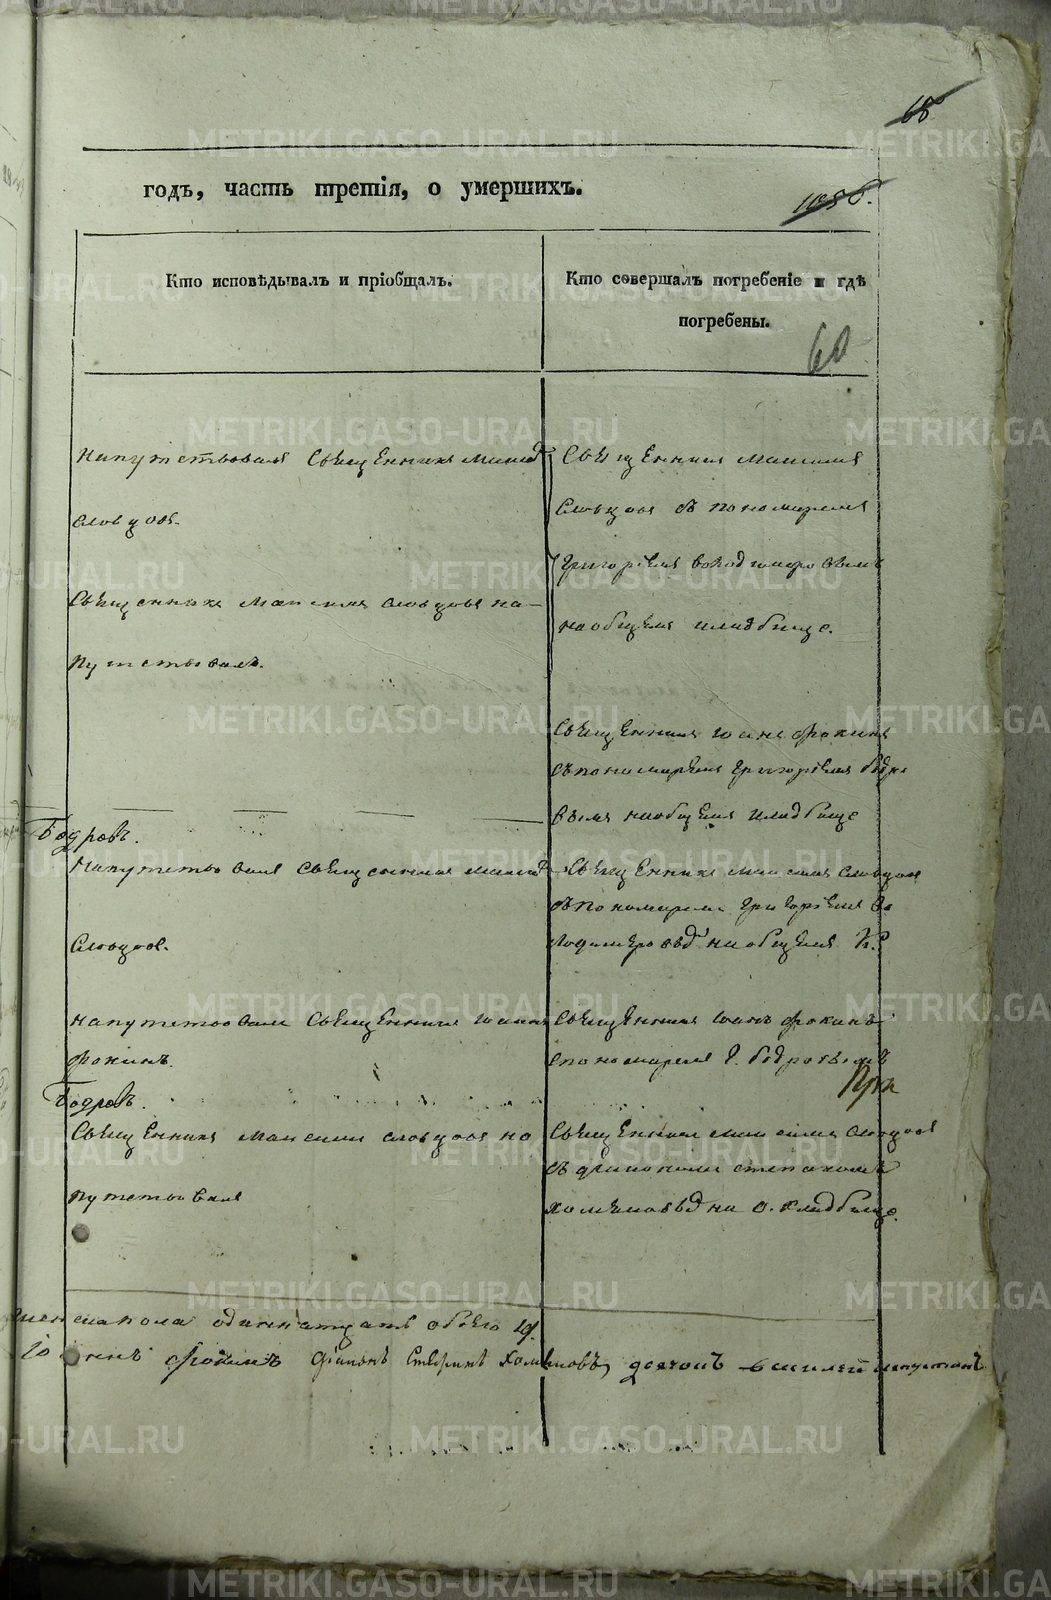 68
годъ, часть третія, о умершихъ.
1056.
Кто исповѣдывалъ и пріобщалъ.
Кто совершалъ погребеніе и гдѣ
погребены.
60
Напутствовалъ Священникъ
Словцовъ.
Священникъ Максимъ Словцовъ на-
путствовалъ.
Священникъ Максимъ
Словцовъ съ пономаремъ
Григоріемъ
на общемъ кладбище.
Священникъ Іоанъ Фокинъ
съ пономаремъ Григоріемъ Бодро
вымъ на общемъ кладбище
Бодровъ.
Напутствовалъ Священникъ
Словцовъ.
Священникъ Максимъ Словцовъ
съ пономаремъ Григоріемъ Во
на общемъ К.
Напутствовалъ Священникъ Іоанъ
Фокинъ.
Священникъ Іоанъ Фокинъ
с пономаремъ Г. Бодровымъ
Бодровъ.
Священникъ Максимъ Словцовъ на
путствовалъ
Священникъ Максимъ Словцовъ
съ діакономъ
на о. кладбище.
женска пола одиннатцать обоего 19.
Фокинъ Холмановъ,
METRIKI.GASO-URAL.RU